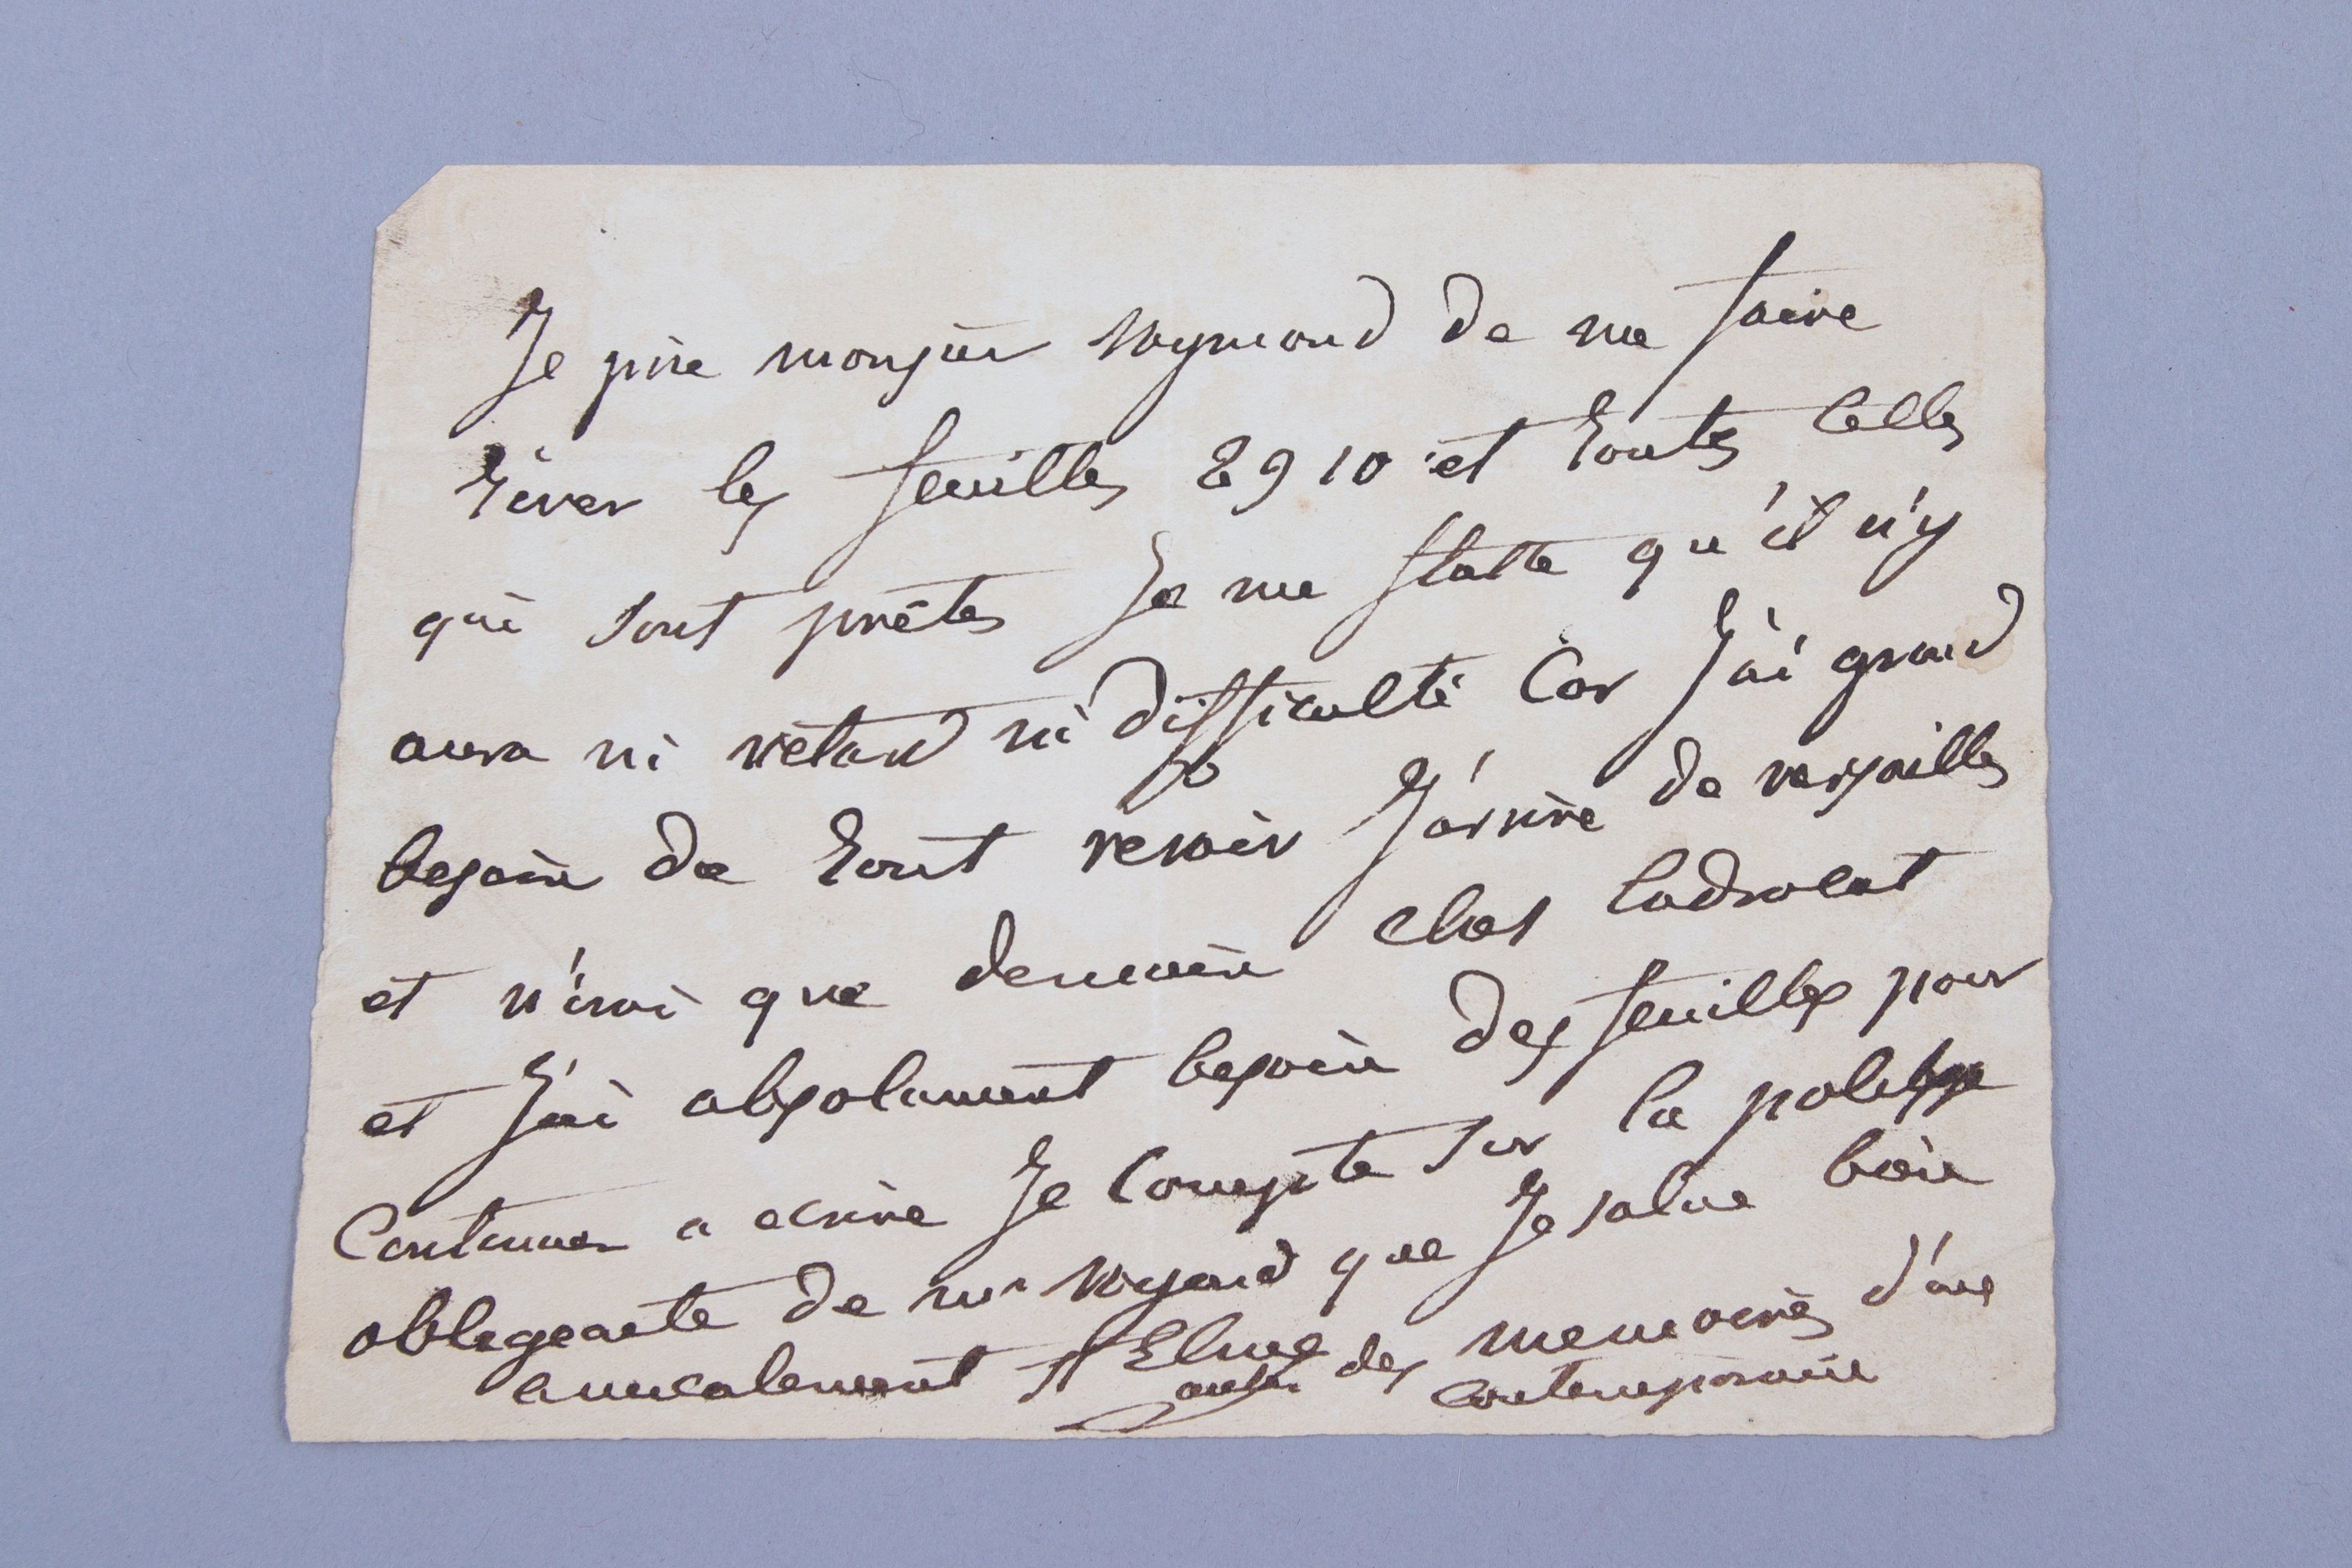 Je prie monsieur Raymond de me faire
tirer les feuilles 8 9 10 et toutes celles
qui sont prêtes Je me flatte qu'il n'y
aura ni retard ni difficulté Car J'ai grand
besoin de tout revoir J'arrive de versailles
et n'irai que demain chez ladvocat
et J'ai absolument besoin des feuilles pour
Continuer a ecrire Je Compte sur la politesse
obligeante de mr Raymond que Je salue bien
amicalement St Elme
auteur des memoires d'une
contemporaine